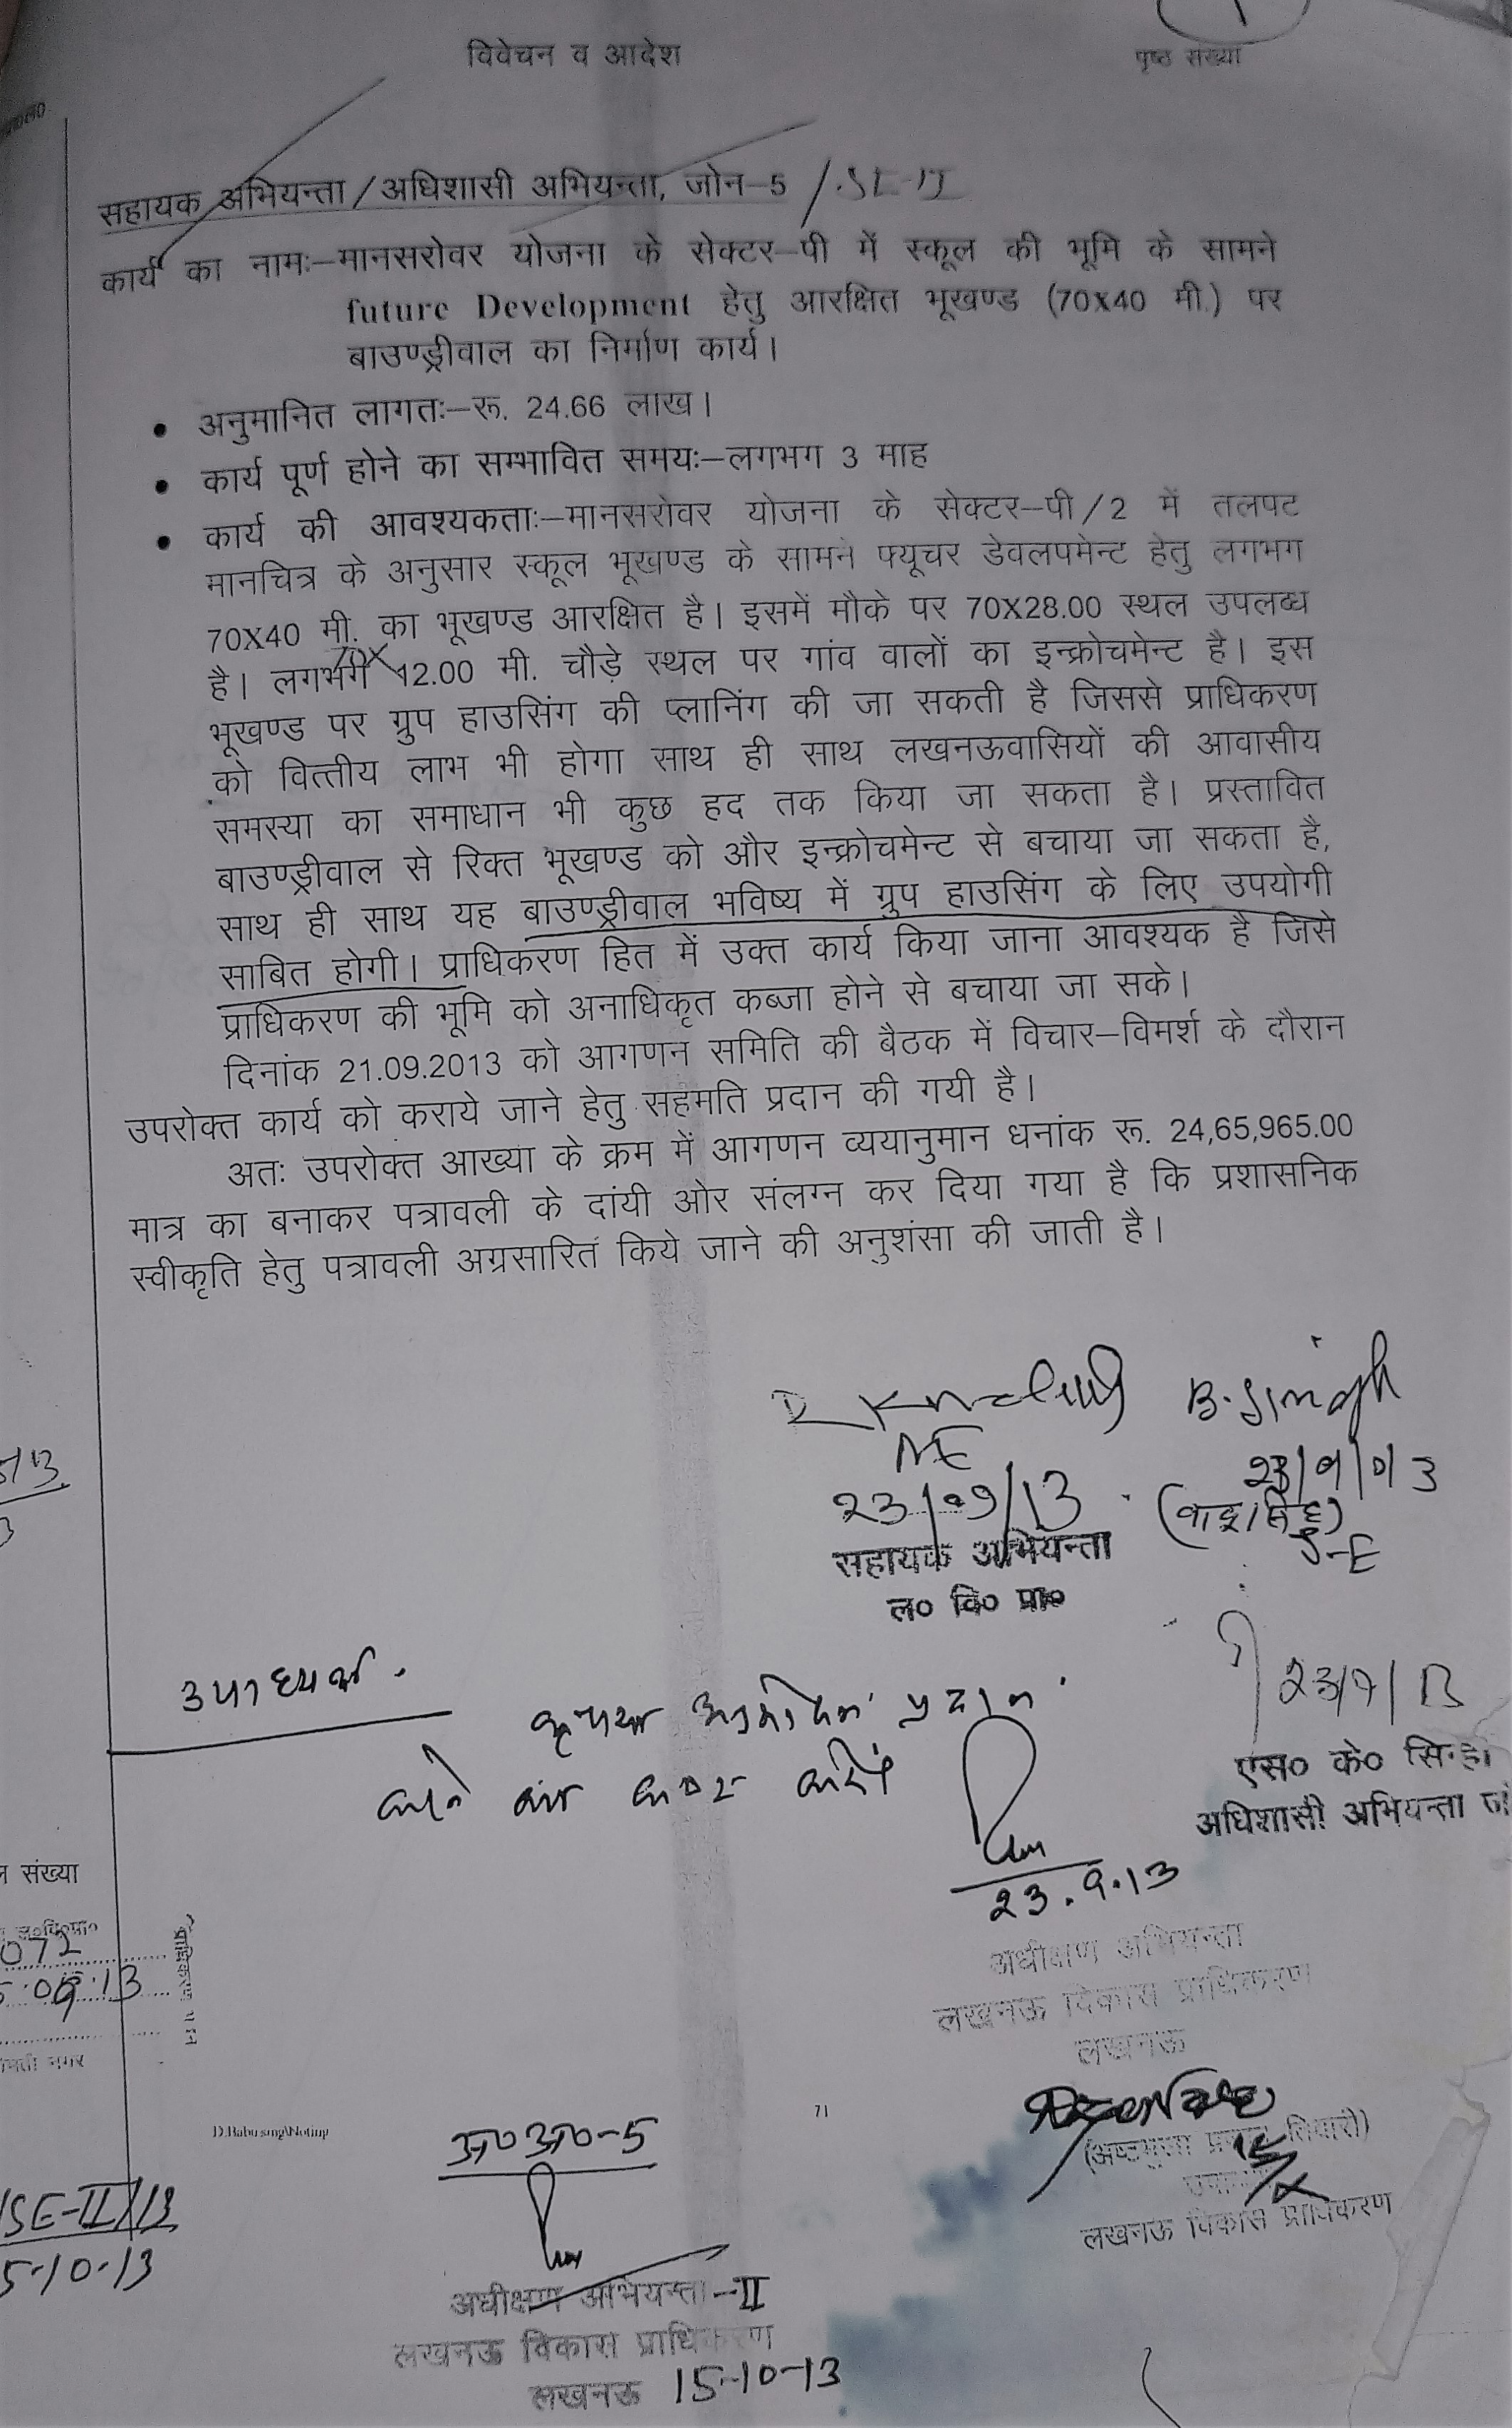 विवेचन व आदेश
पृष्ठ संख्या
1
सहायक अभियन्ता/अधिशासी अभियन्ता, जोन–5 /SE-II
कार्य का नामः–मानसरोवर योजना के सेक्टर–पी में स्कूल की भूमि के सामने
future Development हेतु आरक्षित भूखण्ड (70X40 मी.) पर
बाउण्ड्रीवाल का निर्माण कार्य।
• अनुमानित लागतः–रू. 24.66 लाख।
• कार्य पूर्ण होने का सम्भावित समयः–लगभग 3 माह
• कार्य की आवश्यकताः–मानसरोवर योजना के सेक्टर–पी/2 में तलपट
मानचित्र के अनुसार स्कूल भूखण्ड के सामने फ्यूचर डेवलपमेन्ट हेतु लगभग
70X40 मी. का भूखण्ड आरक्षित है। इसमें मौके पर 70X28.00 स्थल उपलब्ध
है। लगभग 70X 12.00 मी. चौड़े स्थल पर गांव वालों का इन्क्रोचमेन्ट है। इस
भूखण्ड पर ग्रुप हाउसिंग की प्लानिंग की जा सकती है जिससे प्राधिकरण
को वित्तीय लाभ भी होगा साथ ही साथ लखनऊवासियों की आवासीय
समस्या का समाधान भी कुछ हद तक किया जा सकता है। प्रस्तावित
बाउण्ड्रीवाल से रिक्त भूखण्ड को और इन्क्रोचमेन्ट से बचाया जा सकता है,
साथ ही साथ यह बाउण्ड्रीवाल भविष्य में ग्रुप हाउसिंग के लिए उपयोगी
साबित होगी। प्राधिकरण हित में उक्त कार्य किया जाना आवश्यक है जिसे
प्राधिकरण की भूमि को अनाधिकृत कब्जा होने से बचाया जा सके।
दिनांक 21.09.2013 को आगणन समिति की बैठक में विचार–विमर्श के दौरान
उपरोक्त कार्य को कराये जाने हेतु सहमति प्रदान की गयी है।
अतः उपरोक्त आख्या के क्रम में आगणन व्ययानुमान धनांक रू. 24,65,965.00
मात्र का बनाकर पत्रावली के दांयी ओर संलग्न कर दिया गया है कि प्रशासनिक
स्वीकृति हेतु पत्रावली अग्रसारित किये जाने की अनुशंसा की जाती है।
B. Singh
AE
23/09/13
सहायक अभियन्ता
ल० वि० प्रा०
J-E
उपाध्यक्ष
कृपया अनुमोदन प्रदान
करने का कष्ट करें
23/9/13
एस० के० सिन्हा
अधिशासी अभियन्ता
23.9.13
अधीक्षण अभियन्ता
लखनऊ विकास प्राधिकरण
लखनऊ
संख्या
ल०वि०प्रा०
072
09.13
71
D.Babu sing\Noting
अ०अ०–5
लखनऊ विकास प्राधिकरण
SE-II/13
5-10-13
अधीक्षण अभियन्ता–II
लखनऊ विकास प्राधिकरण
लखनऊ 15-10-13